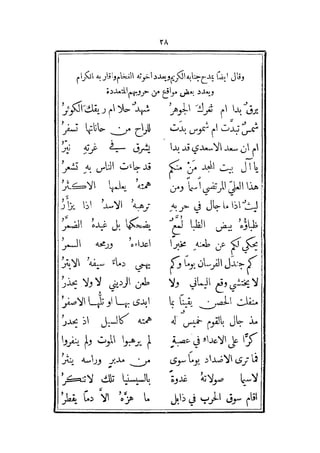 ٣٨
وقال ايضًا يمدح جنابه الكريم ويعدد اخوته الفخام واقاربه الكرام
ويعدد بعض مواقع من حروبهم المتعددة
برقٌ بدا ام ثغركَ الجوهرُ شهدٌ حلا ام ريقك الكوثرُ
شمسٌ تبدَّت ام شموس بدَت للراح من حاناتها تسفرُ
ام ان سعد الاسعدي قد بدا يشرق في غرتهِ نيّرُ
يا آل بيت المجد مَنْ منكم قد جاءَت الناس بهِ تشعرُ
هذا العليّ المرتضي اسماً ومن همتهُ يعلمها الاكثرُ
ليثٌ اذا ما جال في حربهِ ترهبهُ الاسدُ اذا يزأَرُ
ظباؤُهُ بيض الظبا لُمَّعٌ يضحكها بل غيدهُ الضمَّرُ
يحكي لكم عن طعنهِ مخبرًا اعداءهُ ورمحه السمرُ
كم جندل الفرسان يومًا وكم يهمي دماءً سيفهُ الابترُ
لا يختشي وقع اليماني ولا طعن الرديني لا ولا يحذرُ
منفلت الحصن يقينًا بما ابدى بها او تلَّها الاصفرُ
مذ جال بالقوم خميسٌ له همته كالسيل اذ يحدرُ
كرًّا على الاعداء في عصبةٍ لم يرهبوا الموت ولم ينفروا
فما ترى الاضداد يومًا سوى من مدبرٍ وراسه ينثرُ
لاسيما صولاتهُ غدوةً بالسيسنيا تلك لا تنكرُ
اقام سوق الحرب في ذابل ما هزَّهُ الَّا دمًا يقطرُ